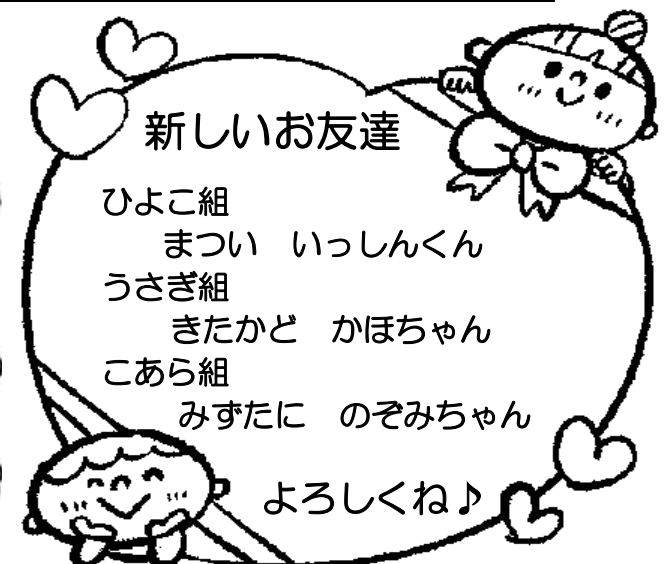 新しいお友達
ひよこ組
まつい　いっしんくん
うさぎ組
きたかど　かほちゃん
こあら組
みずたに　のぞみちゃん
よろしくね♪